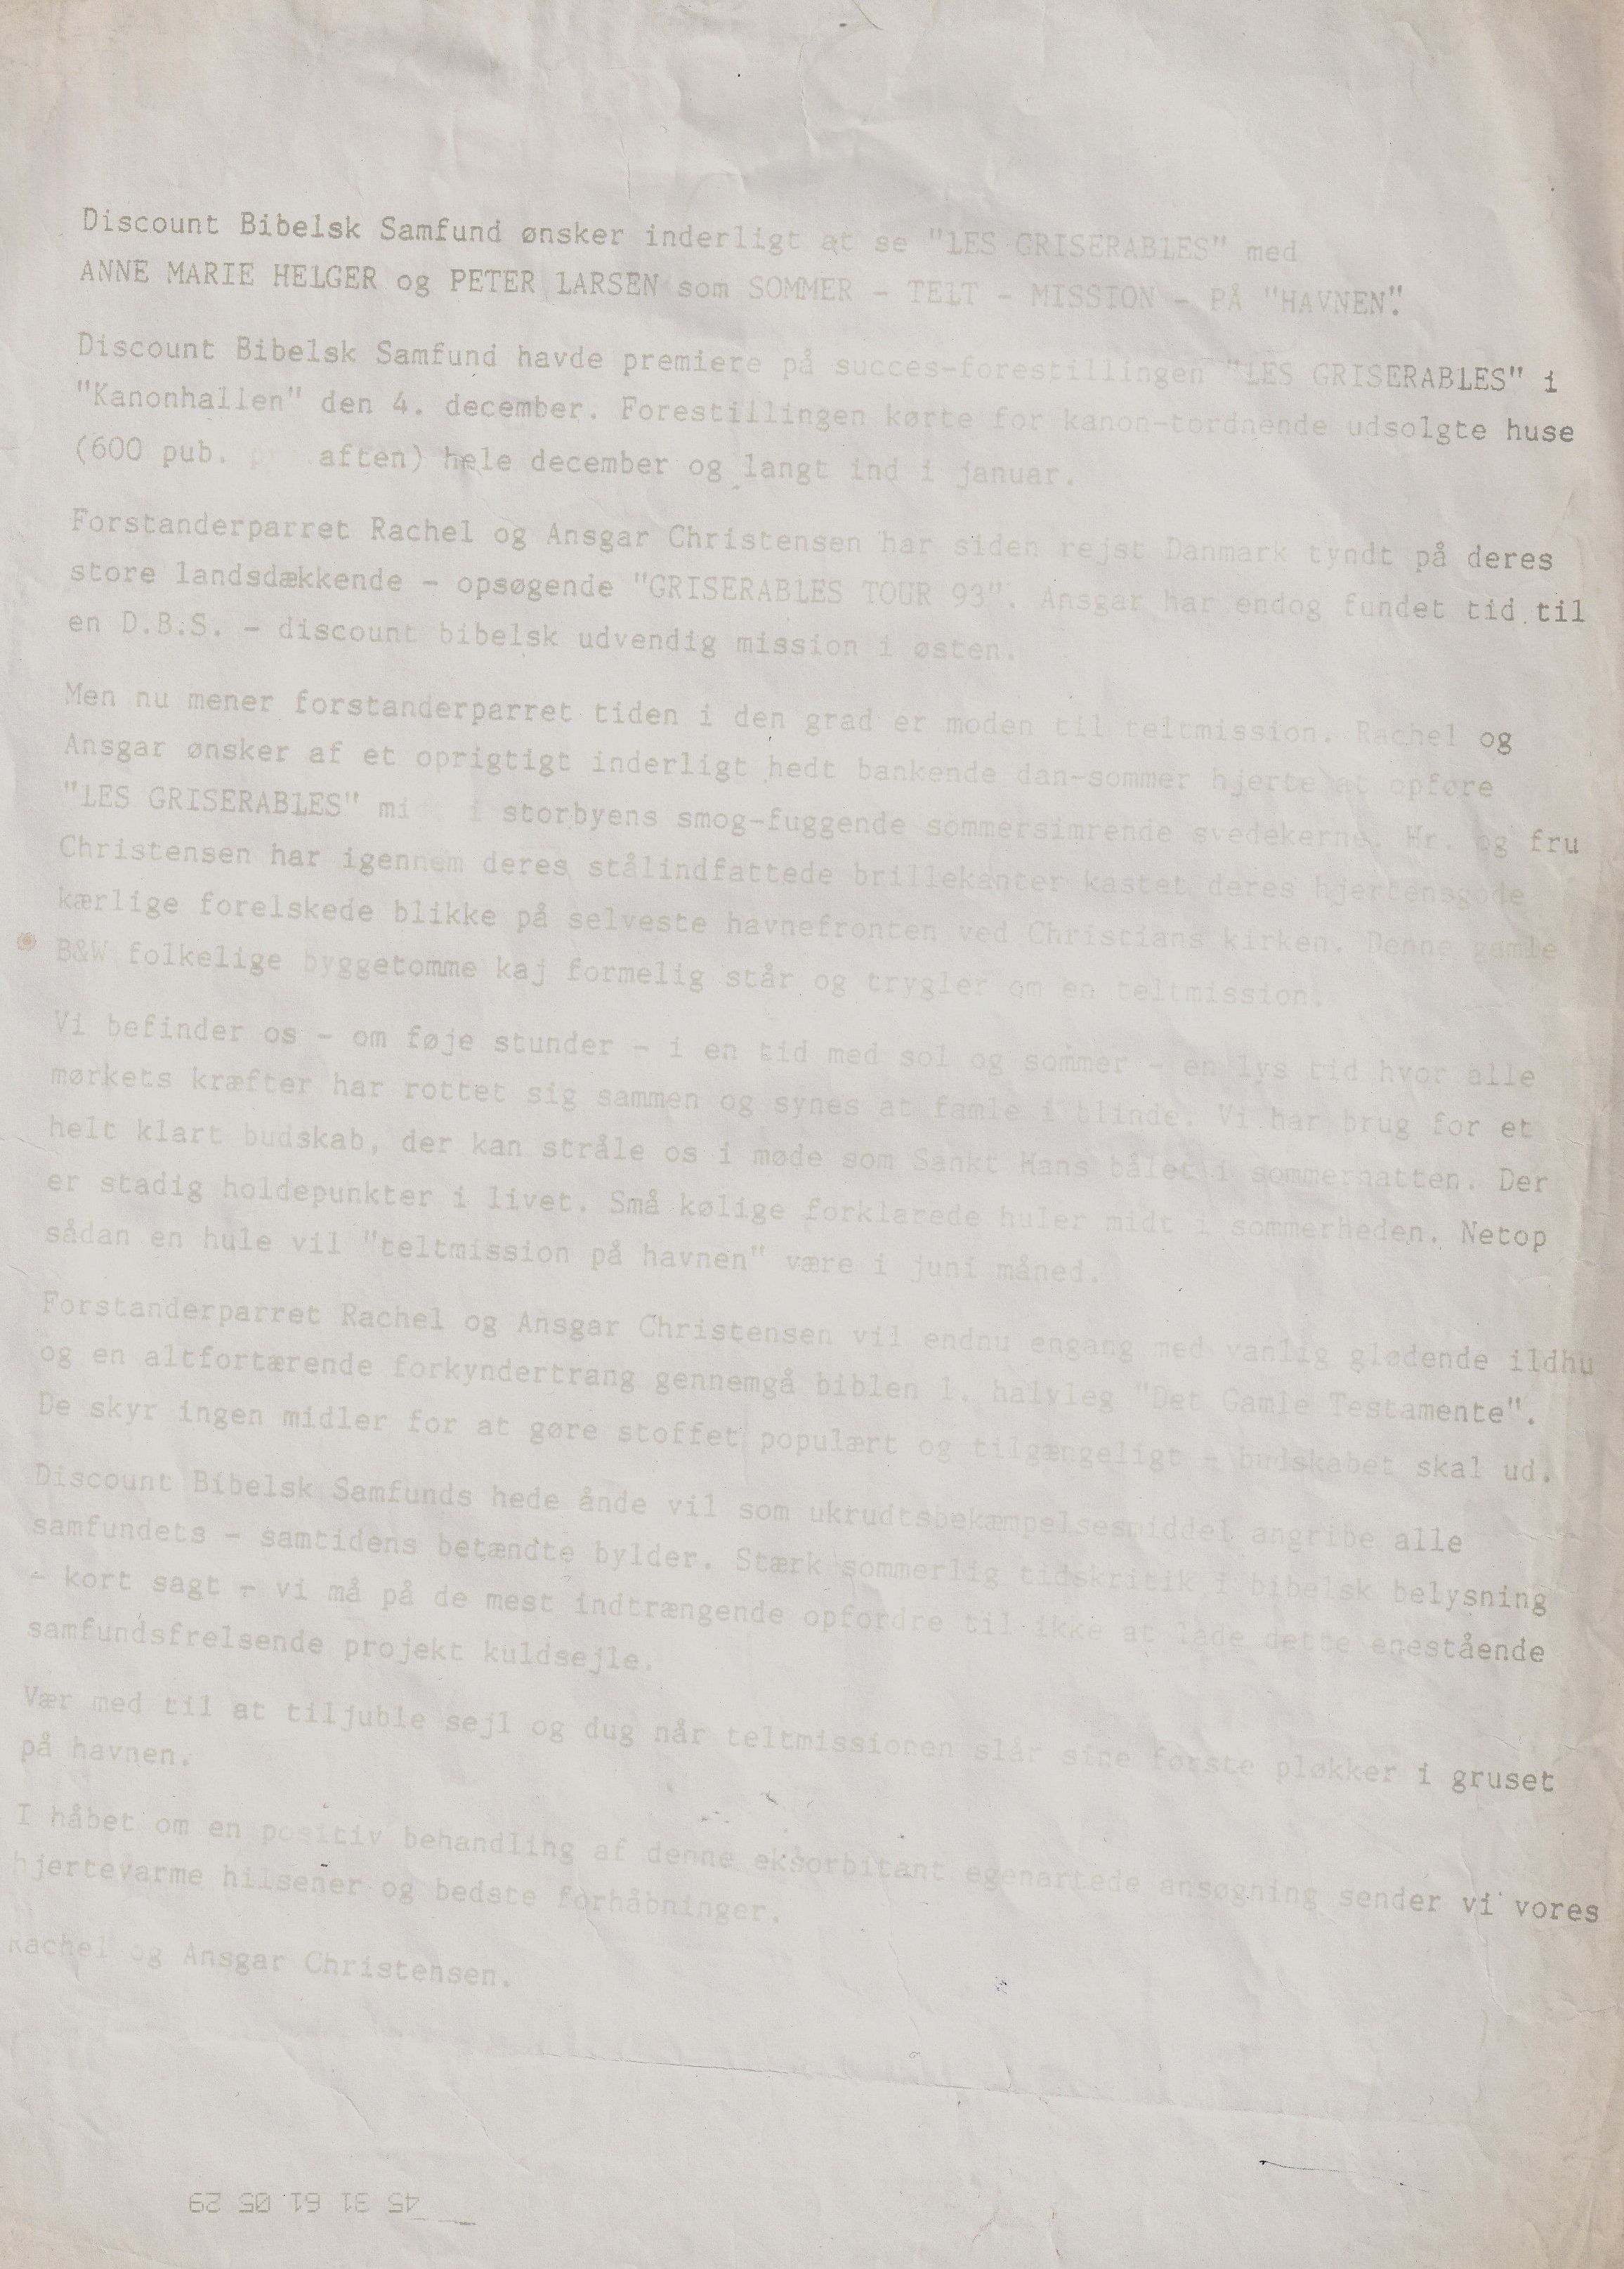 Discount Bibelsk Samfund ønsker inderligt at se "LES GRISERABLES" med
ANNE MARIE HELGER og PETER LARSEN som SOMMER - TELT - MISSION - PÅ "HAVNEN".
Discount Bibelsk Samfund havde premiere på succes-forestillingen "LES GRISERABLES" i
"Kanonhallen" den 4. december. Forestillingen kørte for kanon-tordnende udsolgte huse
(600 pub. aften) hele december og langt ind i januar.
Forstanderparret Rachel og Ansgar Christensen har siden rejst Danmark tyndt på deres
store landsdækkende - opsøgende "GRISERABLES TOUR 93". Ansgar har endog fundet tid til
en D.B.S. - discount bibelsk udvendig mission i østen.
Men nu mener forstanderparret tiden i den grad er moden til teltmission. Rachel og
Ansgar ønsker af et oprigtigt inderligt hedt bankende dan-sommer hjerte at opføre
"LES GRISERABLES" mi i storbyens smog-fuggende sommersimrende svedekerne. Hr. og fru
Christensen har igennem deres stålindfattede brillekanter kastet deres hjertensgode
kærlige forelskede blikke på selveste havnefronten ved Christians kirken. Denne gamle
B&W folkelige byggetomme kaj formelig står og trygler om en teltmission.
Vi befinder os - om føje stunder - i en tid med sol og sommer - en lys tid hvor alle
mørkets kræfter har rottet sig sammen og synes at famle i blinde. Vi har brug for et
helt klart budskab, der kan stråle os i møde som Sankt Hans bålet i sommernatten. Der
er stadig holdepunkter i livet. Små kølige forklarede huler midt i sommerheden. Netop
sådan en hule vil "teltmission på havnen" være i juni måned.
Forstanderparret Rachel og Ansgar Christensen vil endnu engang med vanlig glødende ildhu
og en altfortærende forkyndertrang gennemgå biblen 1. halvleg "Det Gamle Testamente".
De skyr ingen midler for at gøre stoffet populært og tilgængeligt - budskabet skal ud.
Discount Bibelsk Samfunds hede ånde vil som ukrudtsbekæmpelsesmiddel angribe alle
samfundets - samtidens betændte bylder. Stærk sommerlig tidskritik i bibelsk belysning
- kort sagt - vi må på de mest indtrængende opfordre til ikke at lade dette enestående
samfundsfrelsende projekt kuldsejle.
Vær med til at tiljuble sejl og dug når teltmissionen slår sine første pløkker i gruset
på havnen.
I håbet om en positiv behandling af denne eksorbitant egenartede ansøgning sender vi vores
hjertevarme hilsener og bedste forhåbninger.
Rachel og Ansgar Christensen.
45 31 61 05 29